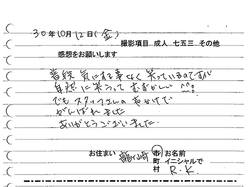 30年10月12日(金)
撮影項目 成人 七五三 その他
感想をお願いします
普段 気にする事なく 笑っているのですが
自然に笑うって むずかしい ^^;
でもスタッフさんの 声かけで
がんばれました
ありがとうございました
お住まい 龍ヶ崎 市 町 村 お名前 イニシャルで R.K.